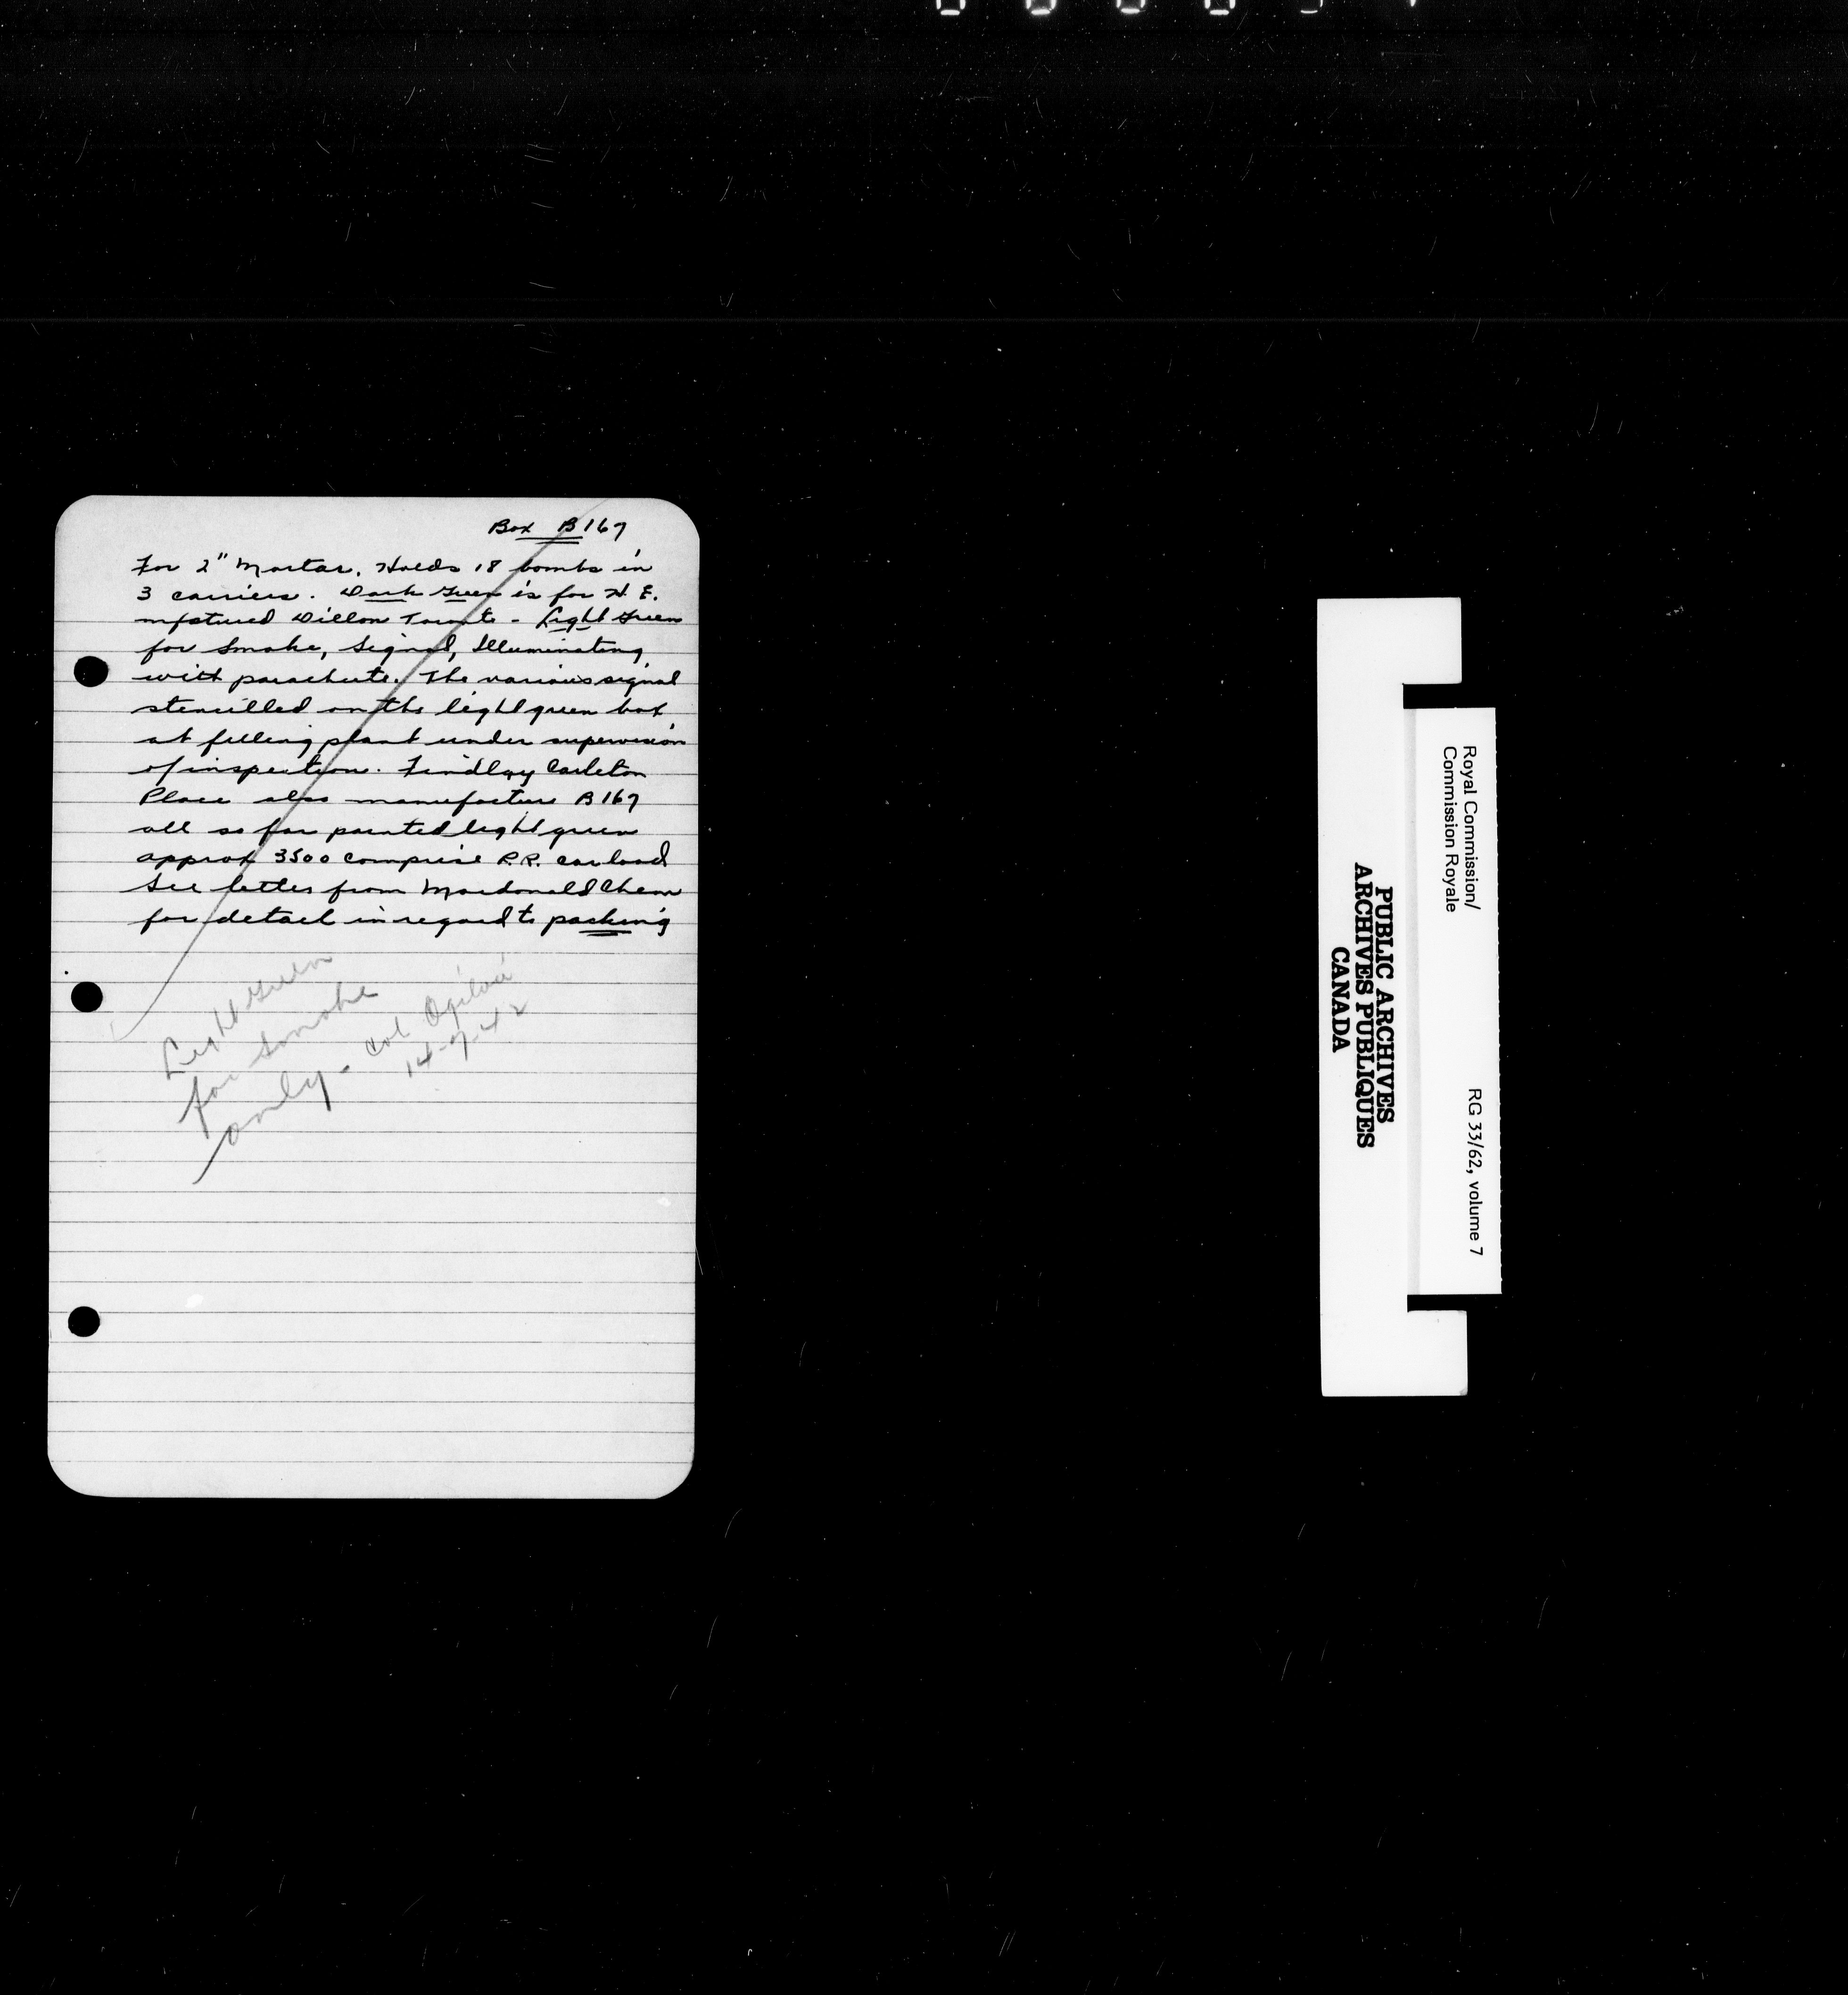 Box B167
For 2" Mortar. Holds 18 bombs in
3 carriers. Dark Green is for H.E.
mfctured Dillon Toronto - Light Green
for Smoke, Signal, Illuminating
with parachute. The various signal
stencilled on the light green box
at filling plant under supervision
of inspection. Findlay Carleton
Place also manufacture B167
all so far painted light green
approx 3500 comprise R.R. carload
See letter from Macdonald Chem
for detail in regard to packing
Light Green
for smoke
only - Col Ogilvie
14-7-42
Royal Commission/
Commission Royale
RG 33/62, volume 7
PUBLIC ARCHIVES
ARCHIVES PUBLIQUES
CANADA